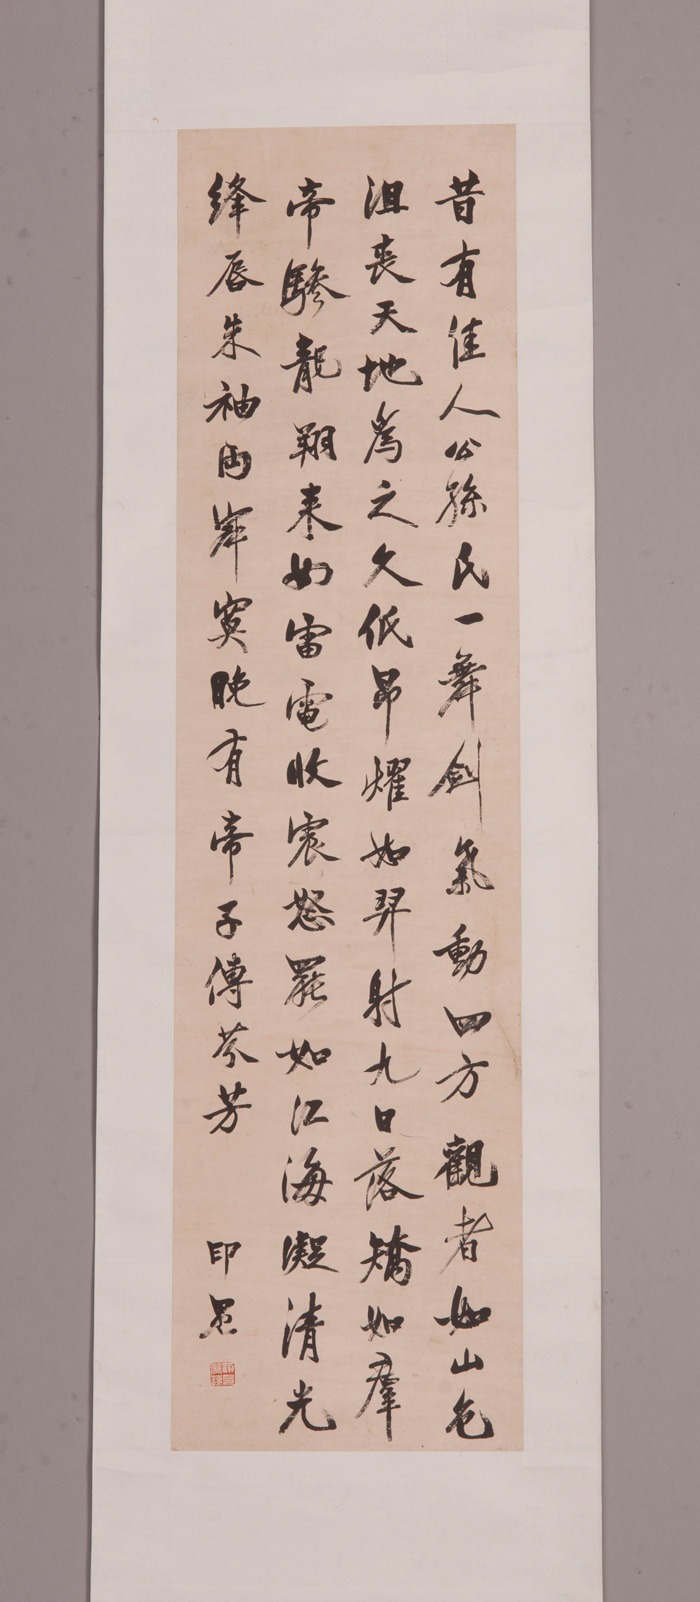 昔有佳人公孫氏一舞劍氣動四方觀者如山色
沮喪天地為之久低昂㸌如羿射九日落矯如羣
帝驂龍翔來如雷電收震怒罷如江海凝清光
絳唇朱袖兩寂寞晚有帝子傳芬芳
印